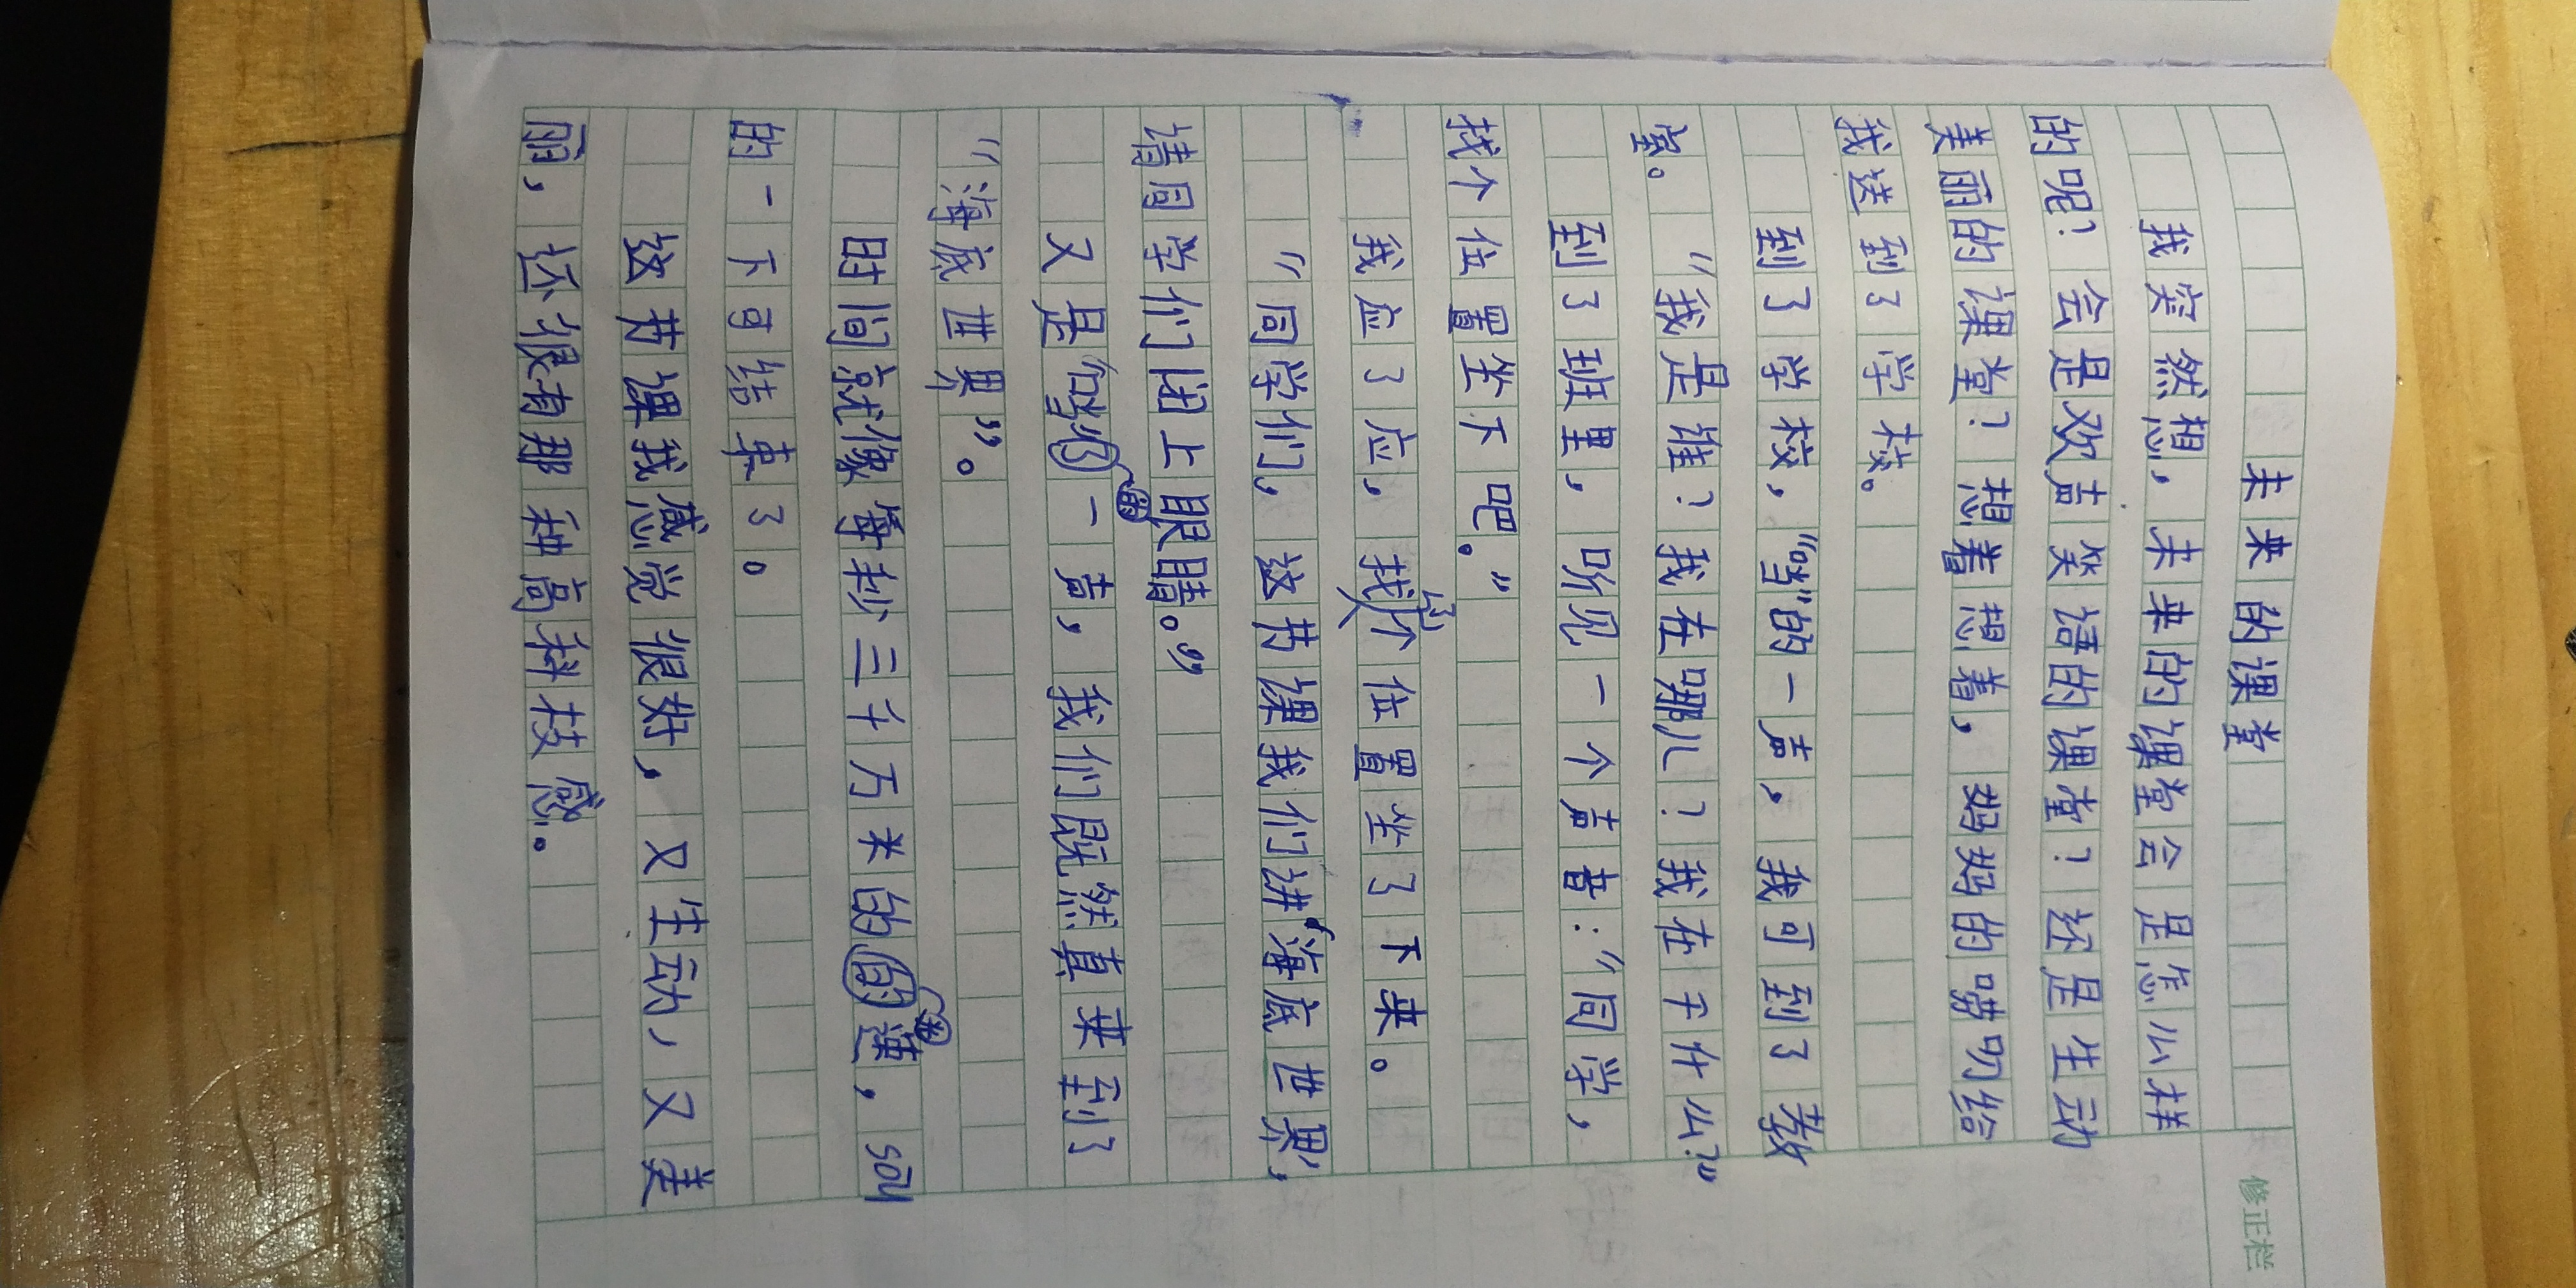 未来的课堂
我突然想，未来的课堂会是怎么样
的呢？会是欢声笑语的课堂？还是生动
美丽的课堂？想着想着，妈妈的唠叨给
我送到了学校。
到了学校，“当”的一声，我可到了教
室。“我是谁？我在哪儿？我在干什么？”
到了班里，听见一个声音：“同学，
找个位置坐下吧。”
我应了应，找个位置坐了下来。
“同学们，这节课我们讲‘海底世界’，
请同学们闭上眼睛。”
又是“当”的一声，我们既然真来到了
“海底世界”。
时间就像每秒三千万米的的速，sou
的一下可结束了。
这节课我感觉很好，又生动，又美
丽，还很有那种高科技感。
修正栏